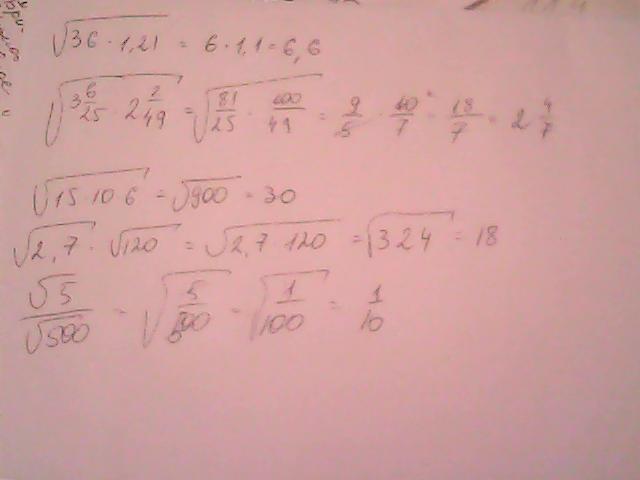 √36 · 1,21 = 6 · 1,1 = 6,6
√3 6/25 · 2 2/49 = √81/25 · 100/49 = 9/5 · 10/7 = 18/7 = 2 4/7
√15 · 10 · 6 = √900 = 30
√2,7 · √120 = √2,7 · 120 = √324 = 18
√5/√500 = √5/500 = √1/100 = 1/10